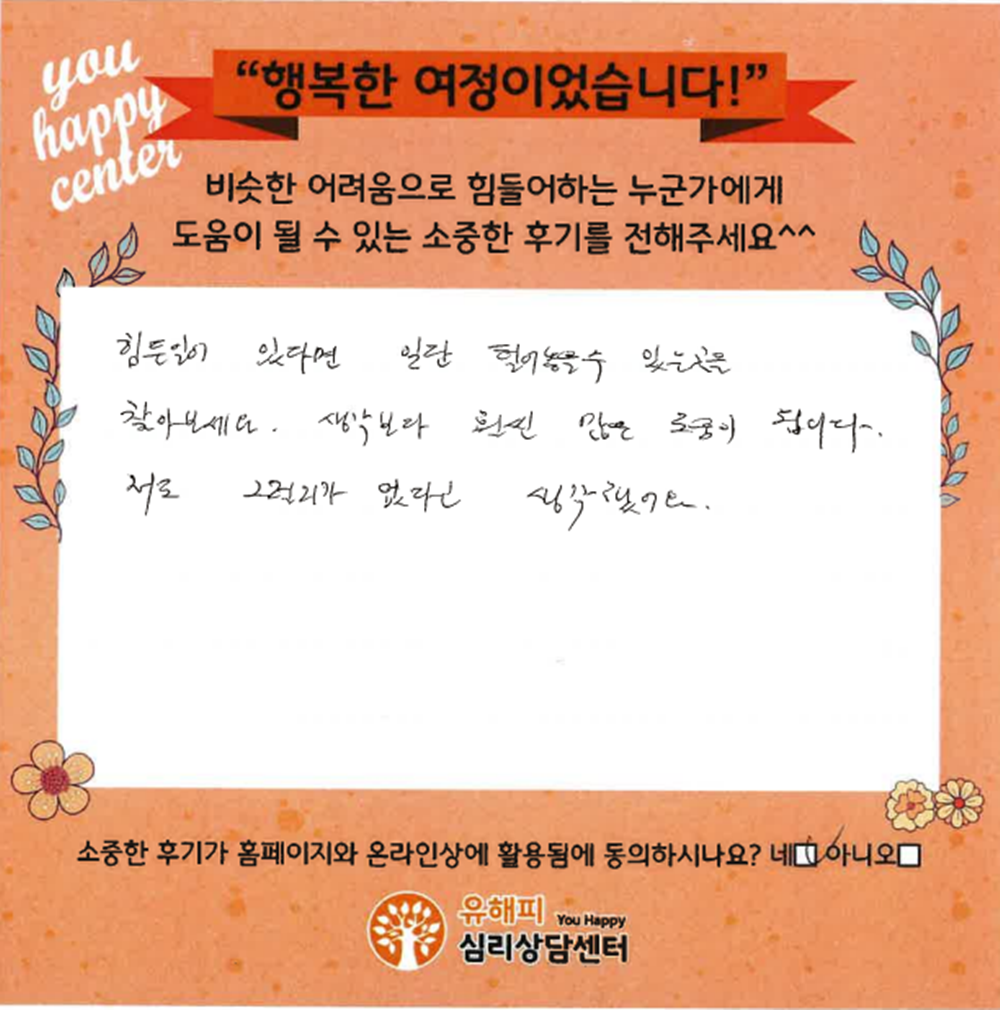 you
happy
center
“행복한 여정이었습니다!”
비슷한 어려움으로 힘들어하는 누군가에게
도움이 될 수 있는 소중한 후기를 전해주세요^^
힘든일이 있다면 일단 털어놓을수 있는곳을
찾아보세요. 생각보다 훨씬 많은 도움이 됩니다~.
저도 그럴리가 없다고 생각했어요.
소중한 후기가 홈페이지와 온라인상에 활용됨에 동의하시나요? 네☑ 아니오☐
유해피 You Happy
심리상담센터